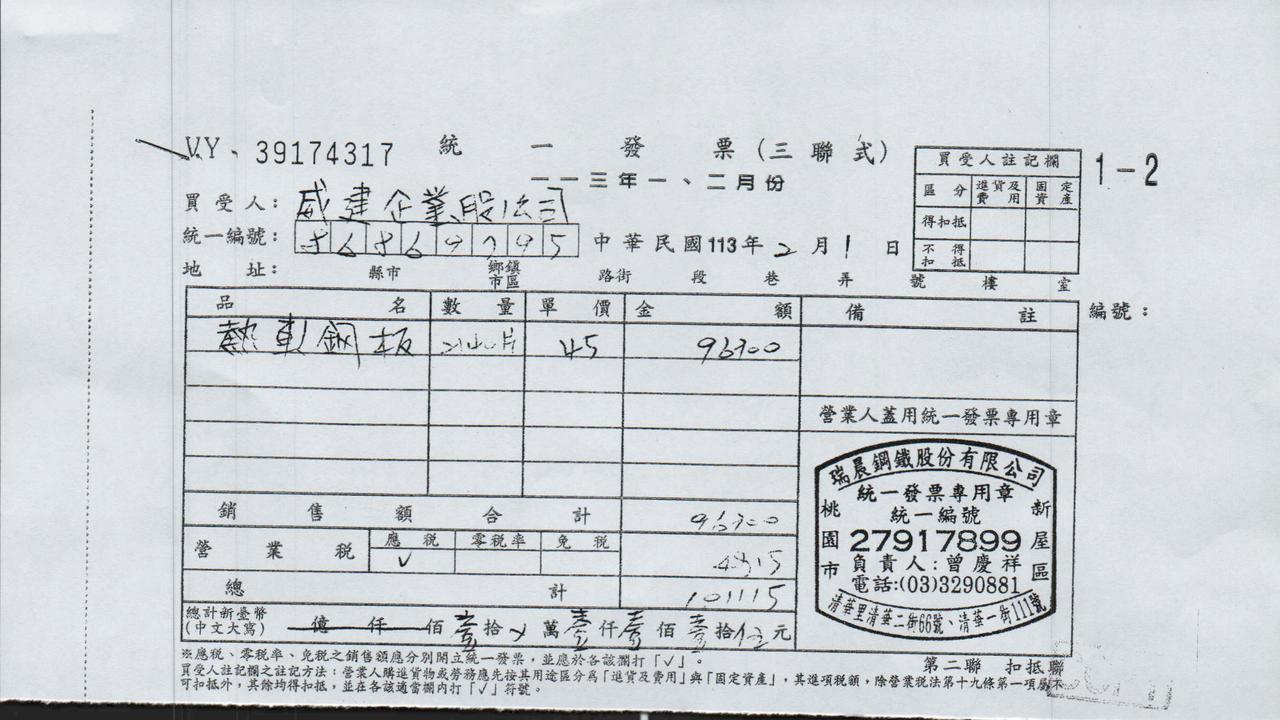 VY 39174317 統一發票(三聯式)
一一三年一、二月份
1-2
買受人註記欄
區分 進貨及費用 固定資產
得扣抵
不得扣抵
買受人：威建企業股公司
統一編號：
中華民國113年2月1日
地址： 縣市 鄉鎮市區 路街 段 巷 弄 號 樓 室
品名 數量 單價 金額 備註 編號：
熱軋鋼板 45 96300
營業人蓋用統一發票專用章
銷售額合計 96300
營業稅 應稅 零稅率 免稅 4815
√
總計 101115
總計新臺幣
(中文大寫) 億 仟 佰 壹 拾 萬 壹 仟 壹 佰 壹 拾 伍 元
瑞晨鋼鐵股份有限公司
統一發票專用章
統一編號
桃園市 27917899 新屋區
負責人:曾慶祥
電話:(03)3290881
清華里清華二街66號、清華一街111號
※應稅、零稅率、免稅之銷售額應分別開立統一發票，並應於各該欄打「√」。
第二聯 扣抵聯
買受人註記欄之註記方法：營業人購進貨物或勞務應先按其用途區分為「進貨及費用」與「固定資產」，其進項稅額，除營業稅法第十九條第一項屬不
可扣抵外，其餘均得扣抵，並在各該適當欄內打「√」符號。